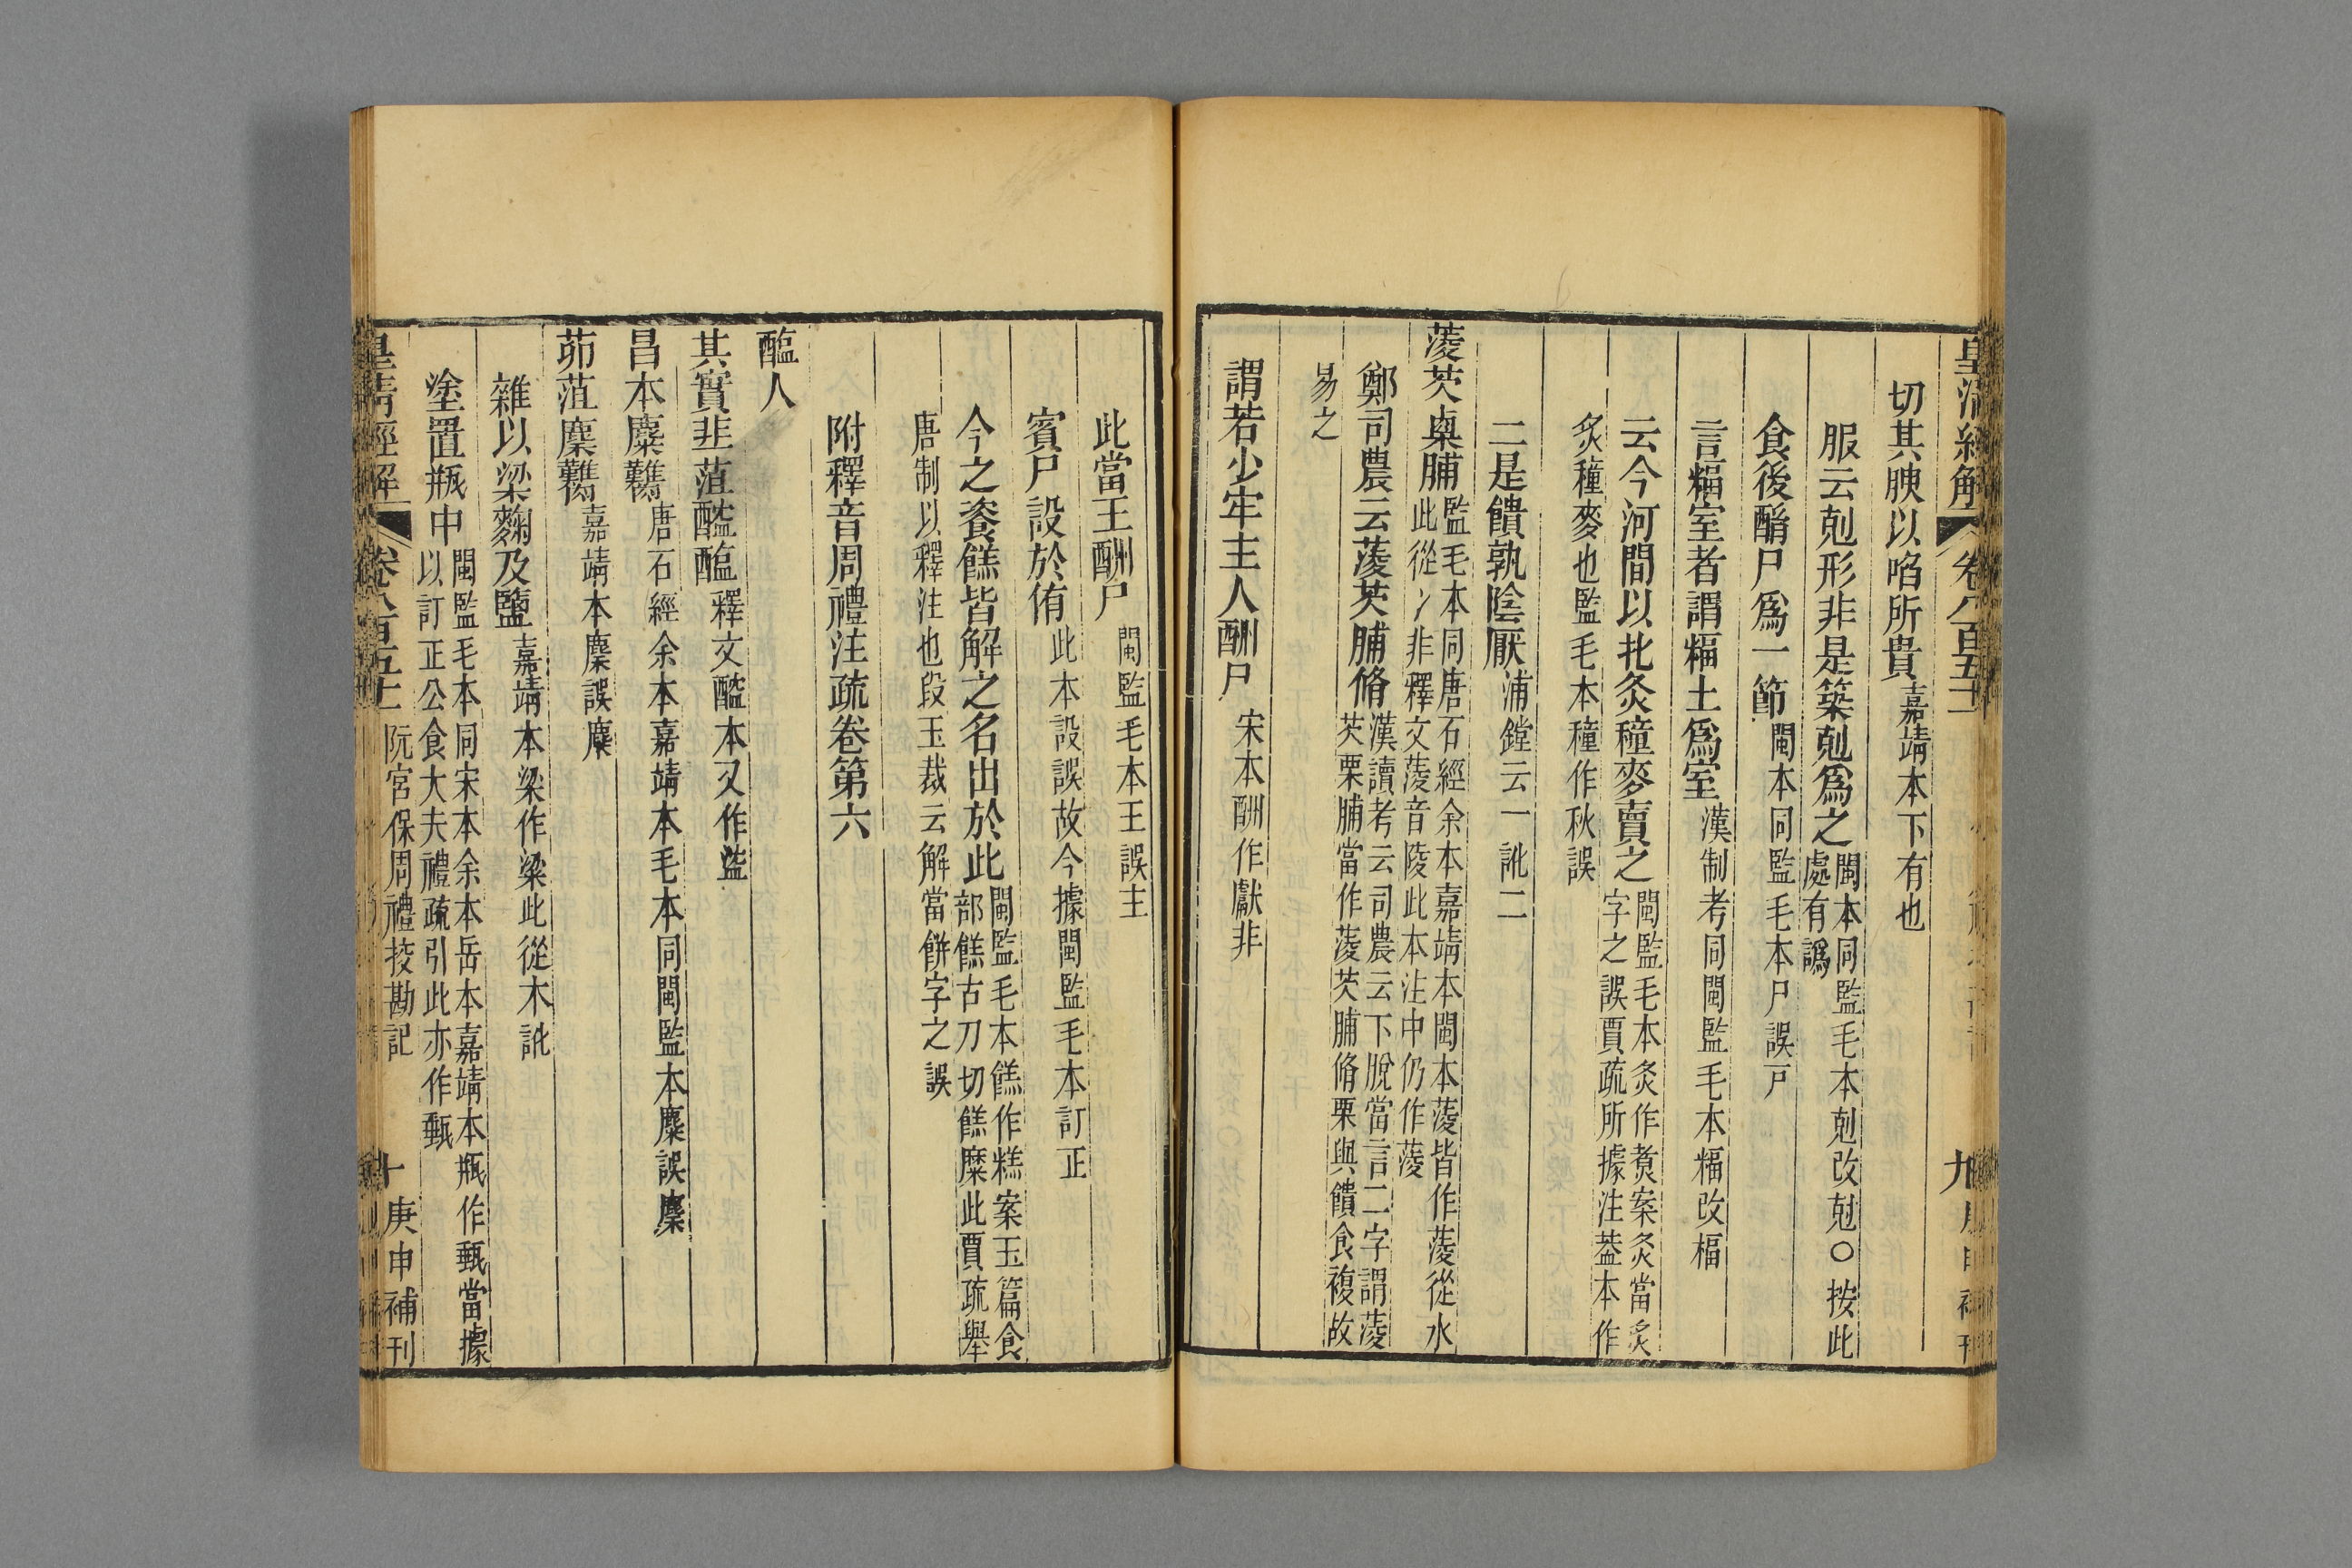 皇清經解 卷八百五十 九 庚申補刊
切其腴以啗所貴嘉靖本下有也
服云剋形非是築剋爲之閩本同監毛本剋改尅〇按此處有譌
食後酳尸爲一節閩本同監毛本尸誤戸
言䊧室者謂䊧土爲室漢制考同閩監毛本䊧改楅
云今河間以北炙穜麥賣之閩監毛本炙作煑案炙當炙字之誤賈疏所據注葢本作
炙穜麥也監毛本穜作秋誤
二是饋孰陰厭浦鏜云一訛二
蔆芡㮚脯監毛本同唐石經余本嘉靖本閩本蔆皆作蓤從水此從冫非釋文蔆音陵此本注中仍作蔆
鄭司農云蔆芡脯脩漢讀考云司農云下脫當言二字謂蔆芡栗脯當作蔆芡脯脩栗與饋食複故
易之
謂若少牢主人酬尸宋本酬作獻非
此當王酬尸閩監毛本王誤主
賓尸設於侑此本設誤故今據閩監毛本訂正
今之餈餻皆解之名出於此閩監毛本餻作糕案玉篇食部餻古刀切餻糜此賈疏舉
唐制以釋注也段玉裁云解當餅字之誤
附釋音周禮注疏卷第六
醢人
其實韭菹醓醢釋文醓本又作㿼
昌本麋臡唐石經余本嘉靖本毛本同閩監本麋誤麇
茆菹麇臡嘉靖本麇誤麋
雜以梁麴及鹽嘉靖本梁作粱此從木訛
塗置瓶中閩監毛本同宋本余本岳本嘉靖本瓶作甄當據以訂正公食大夫禮疏引此亦作甄
皇清經解 卷八百五十 阮宮保周禮挍勘記 十 庚申補刊